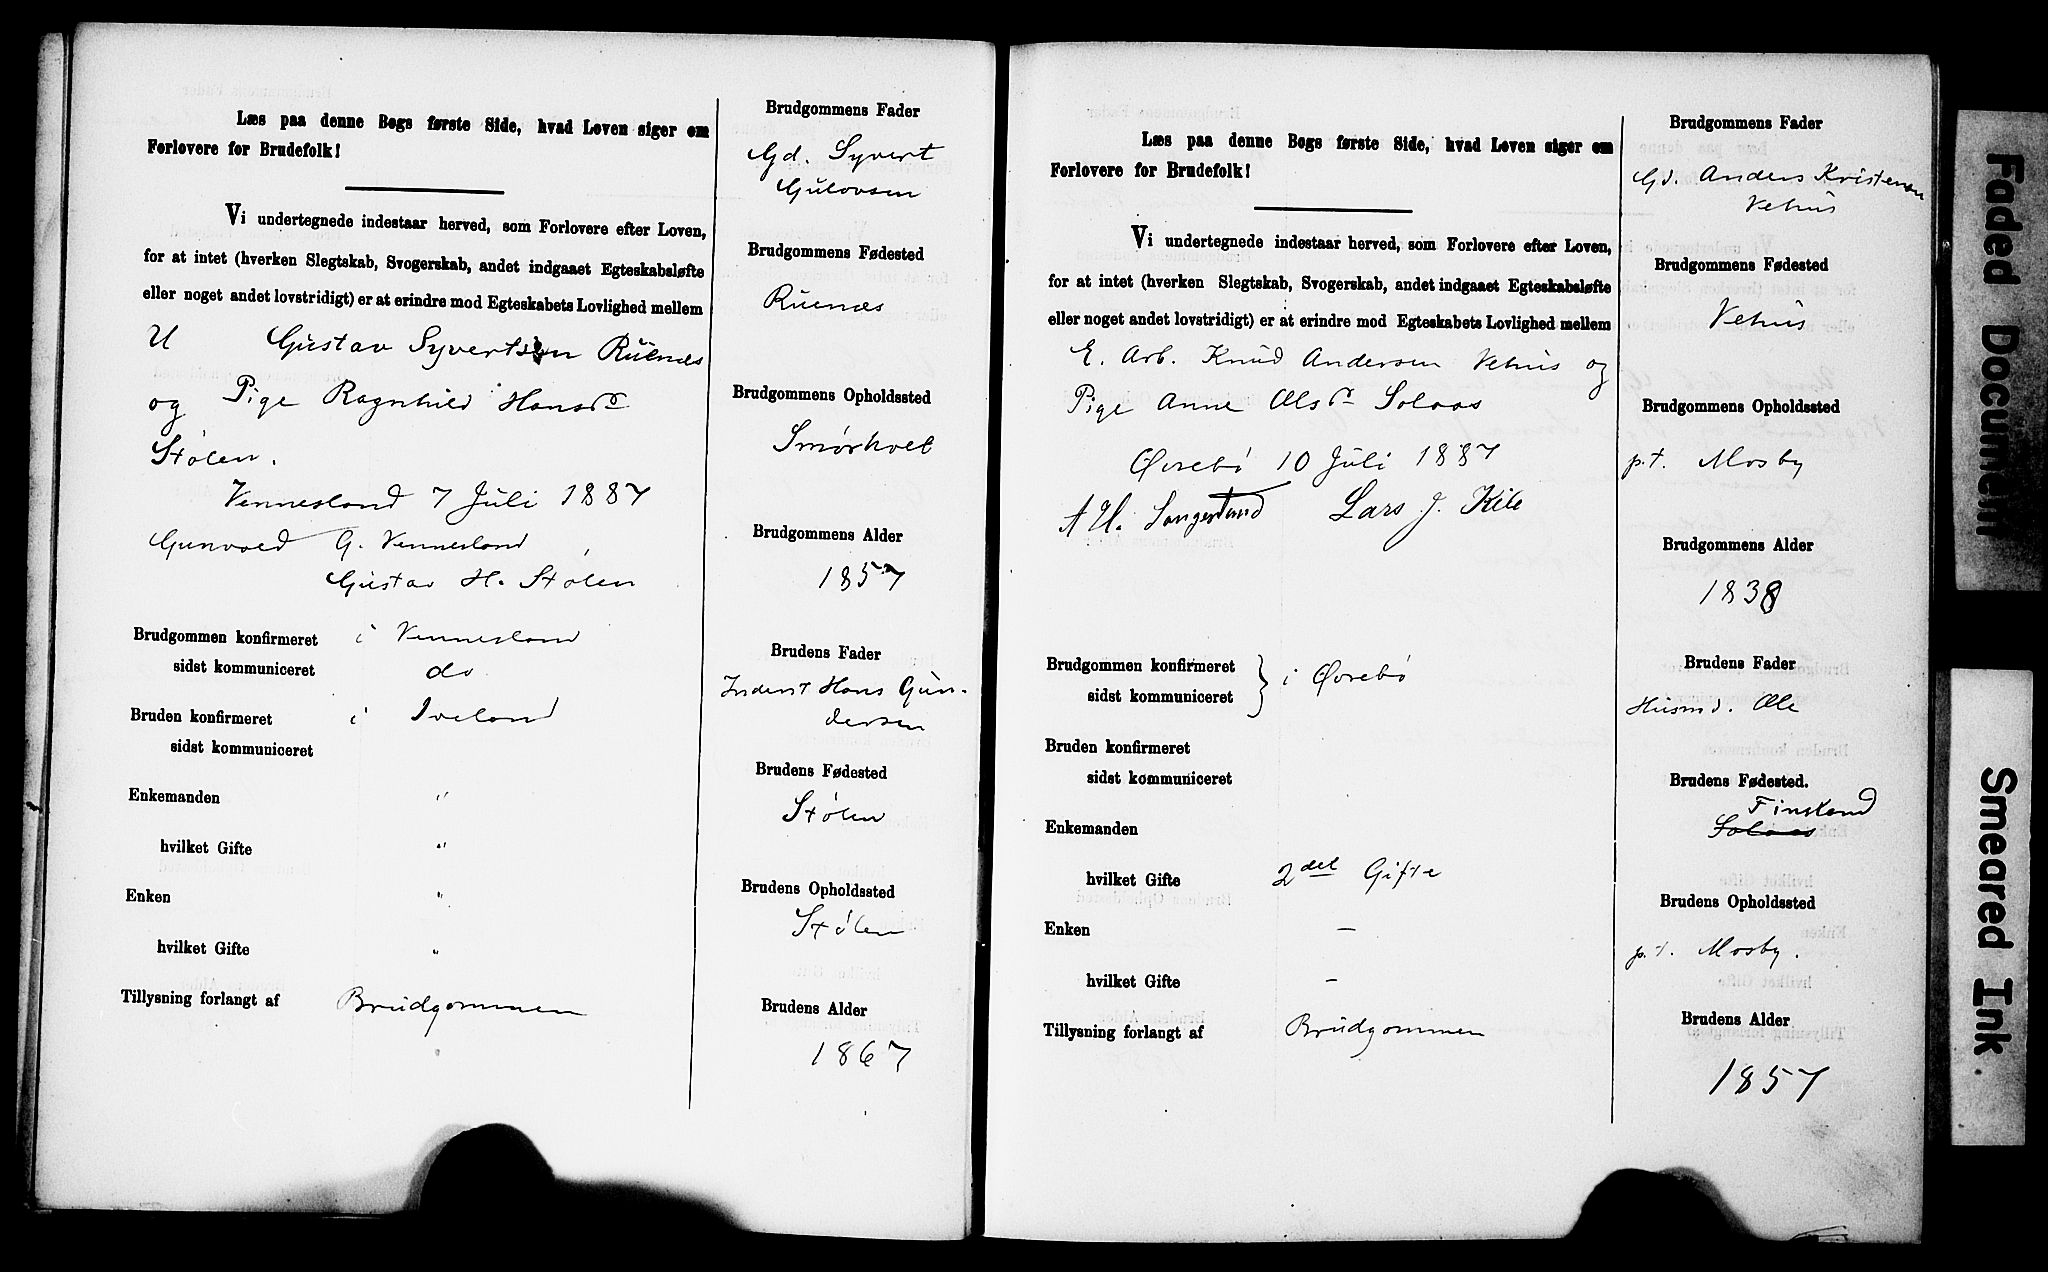 Læs paa denne Bogs første Side, hvad Loven siger om
Forlovere for Brudefolk!
Vi undertegnede indestaar herved, som Forlovere efter Loven,
for at intet (hverken Slegtskab, Svogerskab, andet indgaaet Egteskabsløfte
eller noget andet lovstridigt) er at erindre mod Egteskabets Lovlighed mellem
U Gustav Syvertsen Ruenes
og Pige Ragnhild Hansd.
Stølen.
Vennesland 7 Juli 1887
Gunvald G. Vennesland
Gustav H. Stølen
Brudgommen konfirmeret i Vennesland
sidst kommuniceret do
Bruden konfirmeret i Iveland
sidst kommuniceret
Enkemanden "
hvilket Gifte "
Enken "
hvilket Gifte "
Tillysning forlangt af Brudgommen
Brudgommens Fader
Gd. Syvert
Gulovsen
Brudgommens Fødested
Ruenes
Brudgommens Opholdssted
Smørhvet
Brudgommens Alder
1857
Brudens Fader
Inderst Hans Gun-
dersen
Brudens Fødested
Stølen
Brudens Opholdssted
Stølen
Brudens Alder
1867
Læs paa denne Bogs første Side, hvad Loven siger om
Forlovere for Brudefolk!
Vi undertegnede indestaar herved, som Forlovere efter Loven,
for at intet (hverken Slegtskab, Svogerskab, andet indgaaet Egteskabsløfte
eller noget andet lovstridigt) er at erindre mod Egteskabets Lovlighed mellem
E. Arb. Knud Andersen Vehus og
Pige Anne Olsd. Solaas
Øvrebø 10 Juli 1887
A H. Langesland Lars J. Kile
Brudgommen konfirmeret
sidst kommuniceret } i Øvrebø
Bruden konfirmeret
sidst kommuniceret
Enkemanden
hvilket Gifte 2det Gifte
Enken –
hvilket Gifte –
Tillysning forlangt af Brudgommen
Brudgommens Fader
Gd. Anders Kristensen
Vehus
Brudgommens Fødested
Vehus
Brudgommens Opholdssted
p.t. Mosby
Brudgommens Alder
1838
Brudens Fader
Husmd. Ole
Brudens Fødested.
Finsland
Solaas
Brudens Opholdssted
p.t. Mosby.
Brudens Alder
1857
Faded Document
Smeared Ink